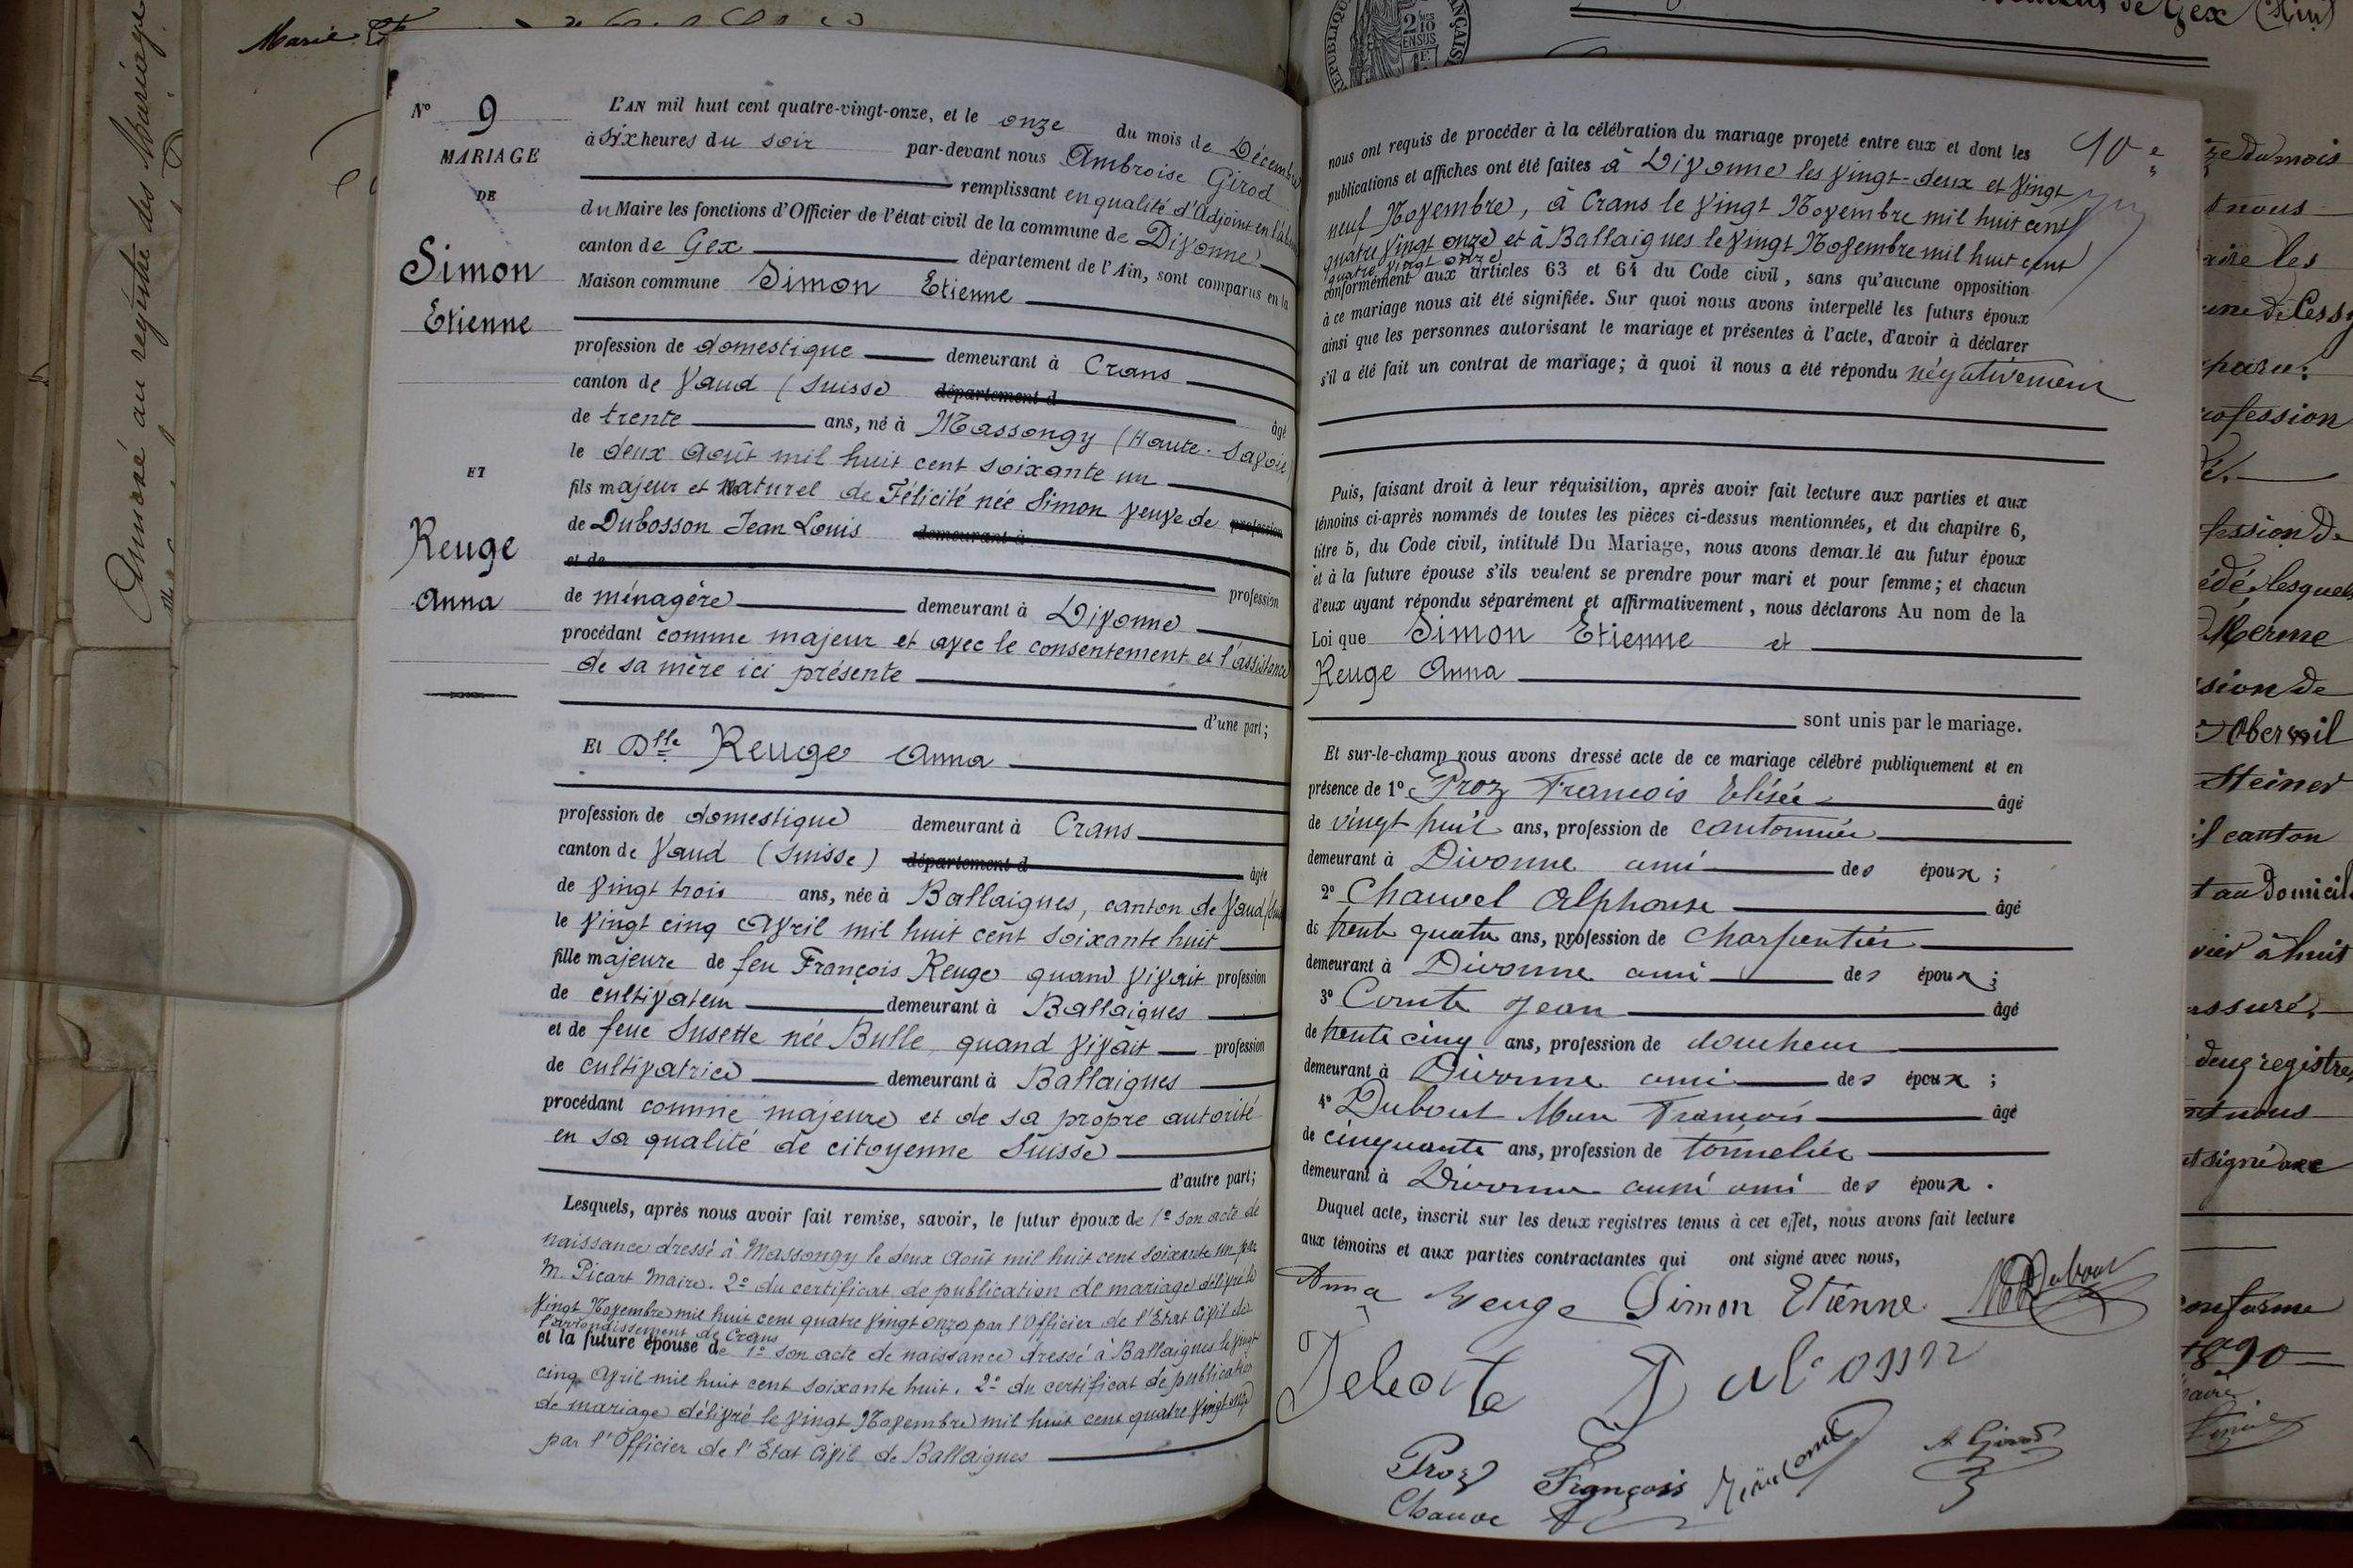 Marie
Annexé au registre des Mariages
N° 9
MARIAGE
DE
Simon
Etienne
ET
Reuge
Anna
L'AN mil huit cent quatre-vingt-onze, et le onze du mois de Décembre
à six heures du soir par-devant nous Ambroise Girod
remplissant en qualité d'Adjoint en l'absence
du Maire les fonctions d'Officier de l'état civil de la commune de Divonne
canton de Gex département de l'Ain, sont comparus en la
Maison commune Simon Etienne
profession de domestique demeurant à Crans
canton de Vaud (Suisse département d
âgé
de trente ans, né à Massongy (Haute-Savoie)
le deux Août mil huit cent soixante un
fils majeur et naturel de Félicité née Simon veuve de profession
de Dubosson Jean Louis demeurant à
et de
profession
de ménagère demeurant à Divonne
procédant comme majeur et avec le consentement et l'assistance
de sa mère ici présente
d'une part;
Et Dlle Reuge Anna
profession de domestique demeurant à Crans
canton de Vaud (Suisse) département d
âgée
de vingt trois ans, née à Ballaigues, canton de Vaud
le vingt cinq Avril mil huit cent soixante huit
fille majeure de feu François Reuge quand vivait profession
de cultivateur demeurant à Ballaigues
et de feue Susette née Bulle, quand vivait profession
de cultivatrice demeurant à Ballaigues
procédant comme majeure et de sa propre autorité
en sa qualité de citoyenne Suisse
d'autre part;
Lesquels, après nous avoir fait remise, savoir, le futur époux de 1° son acte de
naissance dressé à Massongy le deux Août mil huit cent soixante un par
M. Picart Maire. 2° du certificat de publication de mariage délivré le
vingt Novembre mil huit cent quatre vingt onze par l'Officier de l'Etat Civil de
l'arrondissement de Crans
et la future épouse de 1° son acte de naissance dressé à Ballaigues le vingt
cinq Avril mil huit cent soixante huit. 2° du certificat de publication
de mariage délivré le vingt Novembre mil huit cent quatre vingt onze
par l'Officier de l'Etat Civil de Ballaigues
10e
nous ont requis de procéder à la célébration du mariage projeté entre eux et dont les
publications et affiches ont été faites à Divonne les vingt-deux et vingt
neuf Novembre, à Crans le vingt Novembre mil huit cent
quatre vingt onze et à Ballaigues le vingt Novembre mil huit cent
quatre vingt onze
conformément aux articles 63 et 64 du Code civil, sans qu'aucune opposition
à ce mariage nous ait été signifiée. Sur quoi nous avons interpellé les futurs époux
ainsi que les personnes autorisant le mariage et présentes à l'acte, d'avoir à déclarer
s'il a été fait un contrat de mariage; à quoi il nous a été répondu négativement
Puis, faisant droit à leur réquisition, après avoir fait lecture aux parties et aux
témoins ci-après nommés de toutes les pièces ci-dessus mentionnées, et du chapitre 6,
titre 5, du Code civil, intitulé Du Mariage, nous avons demandé au futur époux
et à la future épouse s'ils veulent se prendre pour mari et pour femme; et chacun
d'eux ayant répondu séparément et affirmativement, nous déclarons Au nom de la
Loi que Simon Etienne et
Reuge Anna
sont unis par le mariage.
Et sur-le-champ nous avons dressé acte de ce mariage célébré publiquement et en
présence de 1° Proz François Elisée âgé
de vingt huit ans, profession de cantonnier
demeurant à Divonne ami des époux;
2° Chauvel Alphonse âgé
de trente quatre ans, profession de charpentier
demeurant à Divonne ami des époux;
3° Comte Jean âgé
de trente cinq ans, profession de doucheur
demeurant à Divonne ami des époux;
4° Dubout Marc François âgé
de cinquante ans, profession de tonnelier
demeurant à Divonne aussi ami des époux.
Duquel acte, inscrit sur les deux registres tenus à cet effet, nous avons fait lecture
aux témoins et aux parties contractantes qui ont signé avec nous,
Anna Reuge Simon Etienne Dubout
Proz François A. Girod
Chauve
de Gex (Ain)
du mois
nous
les
de Cessy
profession
fession de
édé lesquels
Merme
sion de
Oberwil
Steiner
canton
au domicile
à huit
assuré,
deux registres
nous
conforme
1890